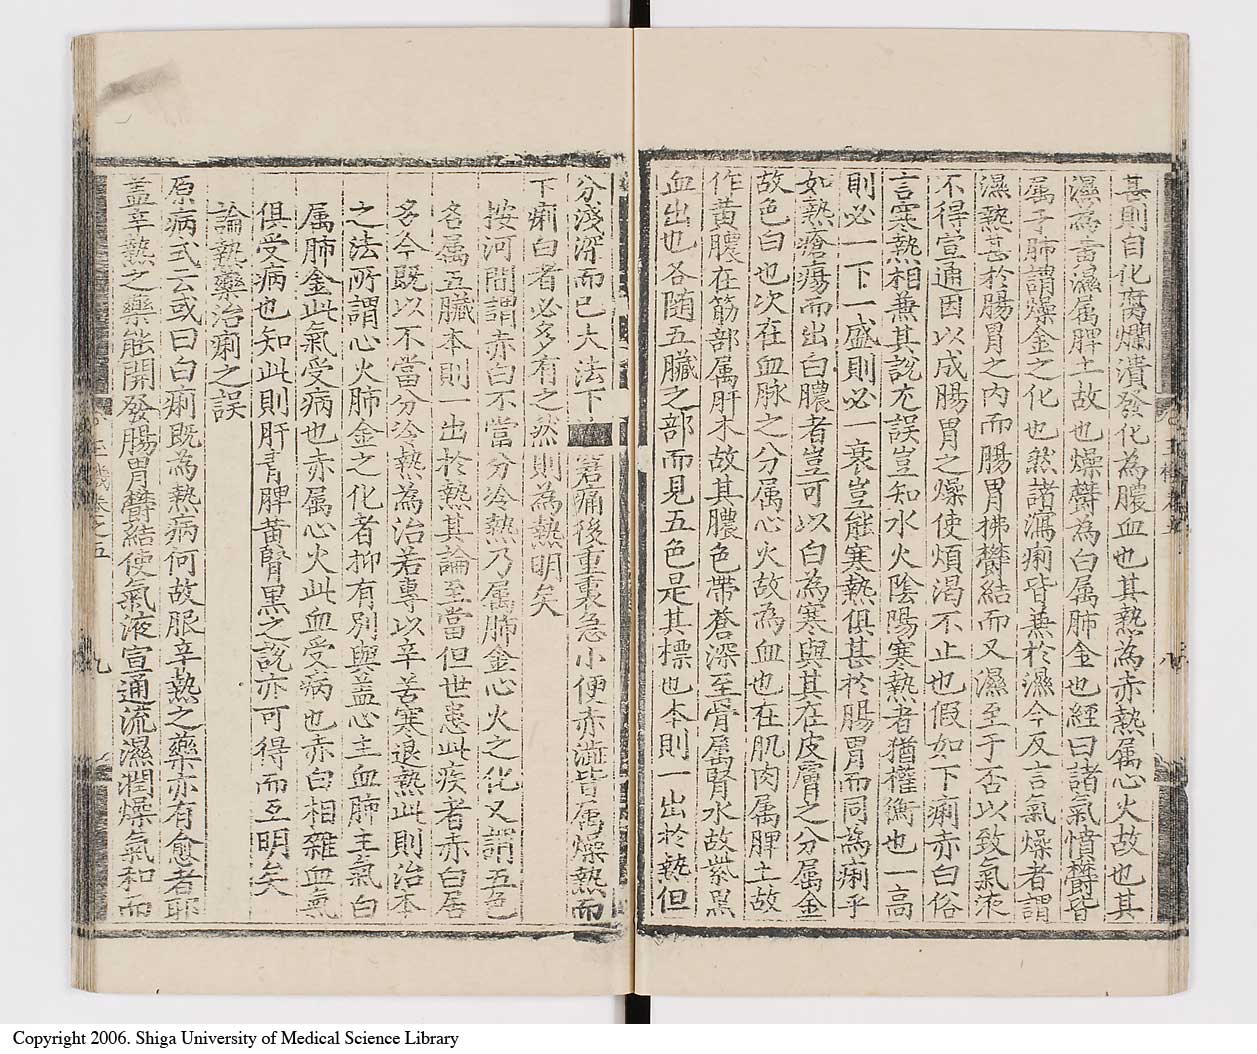 甚則自化腐爛潰發化為膿血也其熱為赤熱屬心火故也其
濕為黃濕属脾土故也燥欝為白属肺金也經曰諸氣憤欝皆
属于肺謂燥金之化也然諸瀉痢皆蕪於濕今反言氣燥者謂
濕熱甚於腸胃之内而腸胃怫欝結而又濕至于否以致氣液
不得宣通因以成腸胃之燥使煩渴不止也假如下痢赤白俗
言寒熱相蕪其說尤誤豈知水火陰陽寒熱者猶權衡也一高
則必一下一盛則必一衰豈能寒熱俱甚於腸胃而同為痢乎
如熱瘡瘍而出白膿者豈可以白為寒與其在皮膚之分属金
故色白也次在血脉之分属心火故為血也在肌肉属脾土故
作黃膿在筋部属肝木故其膿色帶蒼深至骨属腎水故紫黑
血出也各随五臟之部而見五色是其標也本則一出於熱但
分淺深而已大法下 窘痛後重裏急小便赤澁皆属燥熱而
下痢白者必多有之然則為熱明矣
按河間謂赤白不當分冷熱乃属肺金心火之化又謂五色
各属五臟本則一出於熱其論至當但世患此疾者赤白居
多今既以不當分冷熱為治若專以辛苦寒退熱此則治本
之法所謂心火肺金之化者抑有別與盖心主血肺主氣白
属肺金此氣受病也赤属心火此血受病也赤白相雜血氣
俱受病也知此則肝青脾黃腎黑之說亦可得而互明矣
論熱藥治痢之誤
原病式云或曰白痢既為熱病何故服辛熱之藥亦有愈者耶
盖辛熱之藥能開發腸胃欝結使氣液宣通流濕潤燥氣和而
卷之五
九
Copyright 2006. Shiga University of Medical Science Library